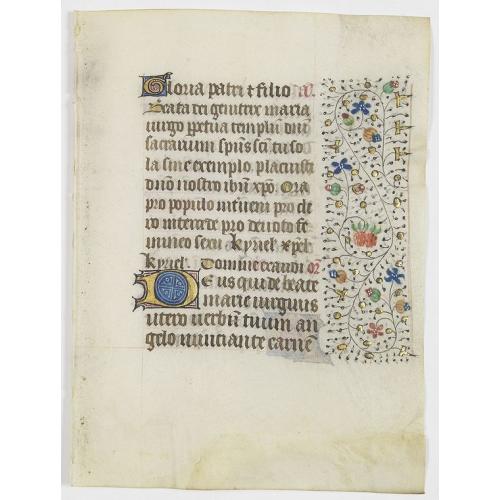 Gloria patri ⁊ filio an.
Beata dei genitrix maria
uirgo ꝑpetua templū dn̄i
sacrarium spūs scī tu so
la sine exemplo placuisti
dn̄o nostro ihū xp̄o. Ora
pro populo interueni pro cle
ro intercede pro deuoto fe
mineo sexu kyriel. xp̄el.
kyriel. Domine exaudi or̄
Deus qui de beate
marie uirginis
utero uerbū tuum an
gelo nunciante carnē